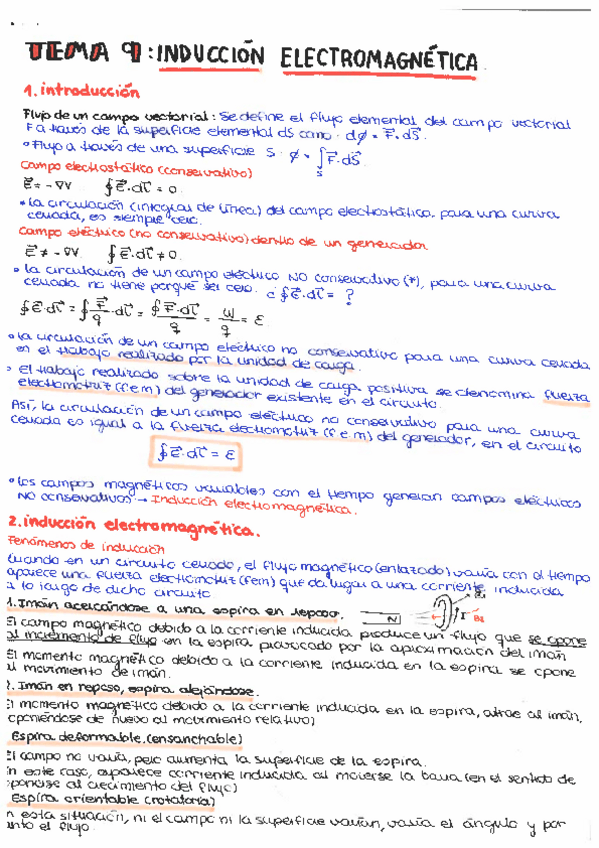 TEMA 9: INDUCCIÓN ELECTROMAGNÉTICA.
1. introducción
Flujo de un campo vectorial: Se define el flujo elemental del campo vectorial
F a través de la superficie elemental dS como: dϕ = F⃗·dS⃗.
• Flujo a través de una superficie S: ϕ = ∫ₛ F⃗·dS⃗.
Campo electrostático (conservativo)
E⃗ = -∇V   ∮E⃗·dl⃗ = 0.
• La circulación (integral de línea) del campo electrostático, para una curva
cerrada, es siempre cero.
Campo eléctrico (no conservativo) dentro de un generador
E⃗ ≠ -∇V.   ∮E⃗·dl⃗ ≠ 0.
• la circulación de un campo eléctrico NO conservativo (*), para una curva
cerrada no tiene porqué ser cero. ¿∮E⃗·dl⃗ = ?
∮E⃗·dl⃗ = ∮F⃗/q·dl⃗ = ∮F⃗·dl⃗/q = W/q = ε.
• la circulación de un campo eléctrico no conservativo para una curva cerrada
es el trabajo realizado por la unidad de carga.
• El trabajo realizado sobre la unidad de carga positiva se denomina fuerza
electromotriz (f.e.m) del generador existente en el circuito.
Así, la circulación de un campo eléctrico no conservativo para una curva
cerrada es igual a la fuerza electromotriz (f.e.m) del generador, en el circuito
∮E⃗·dl⃗ = ε
• Los campos magnéticos variables con el tiempo generan campos eléctricos
NO conservativos → Inducción electromagnética.
2. inducción electromagnética.
Fenómenos de inducción
Cuando en un circuito cerrado, el flujo magnético (enlazado) varía con el tiempo
aparece una fuerza electromotriz (fem) que da lugar a una corriente inducida
a lo largo de dicho circuito
1. Imán acercándose a una espira en reposo.
N
I
El campo magnético debido a la corriente inducida produce un flujo que se opone
al incremento de flujo en la espira provocado por la aproximación del imán
El momento magnético debido a la corriente inducida en la espira se opone
al movimiento de imán.
2. Imán en reposo, espira alejándose.
El momento magnético debido a la corriente inducida en la espira, atrae al imán,
oponiéndose de nuevo al movimiento relativo)
Espira deformable. (ensanchable)
El campo no varía, pero aumenta la superficie de la espira.
En este caso, aparece corriente inducida al moverse la barra (en el sentido de
oponerse al crecimiento del flujo)
Espira orientable (rotatoria)
n esta situación, ni el campo ni la superficie varían, varía el ángulo y por
anto el flujo.